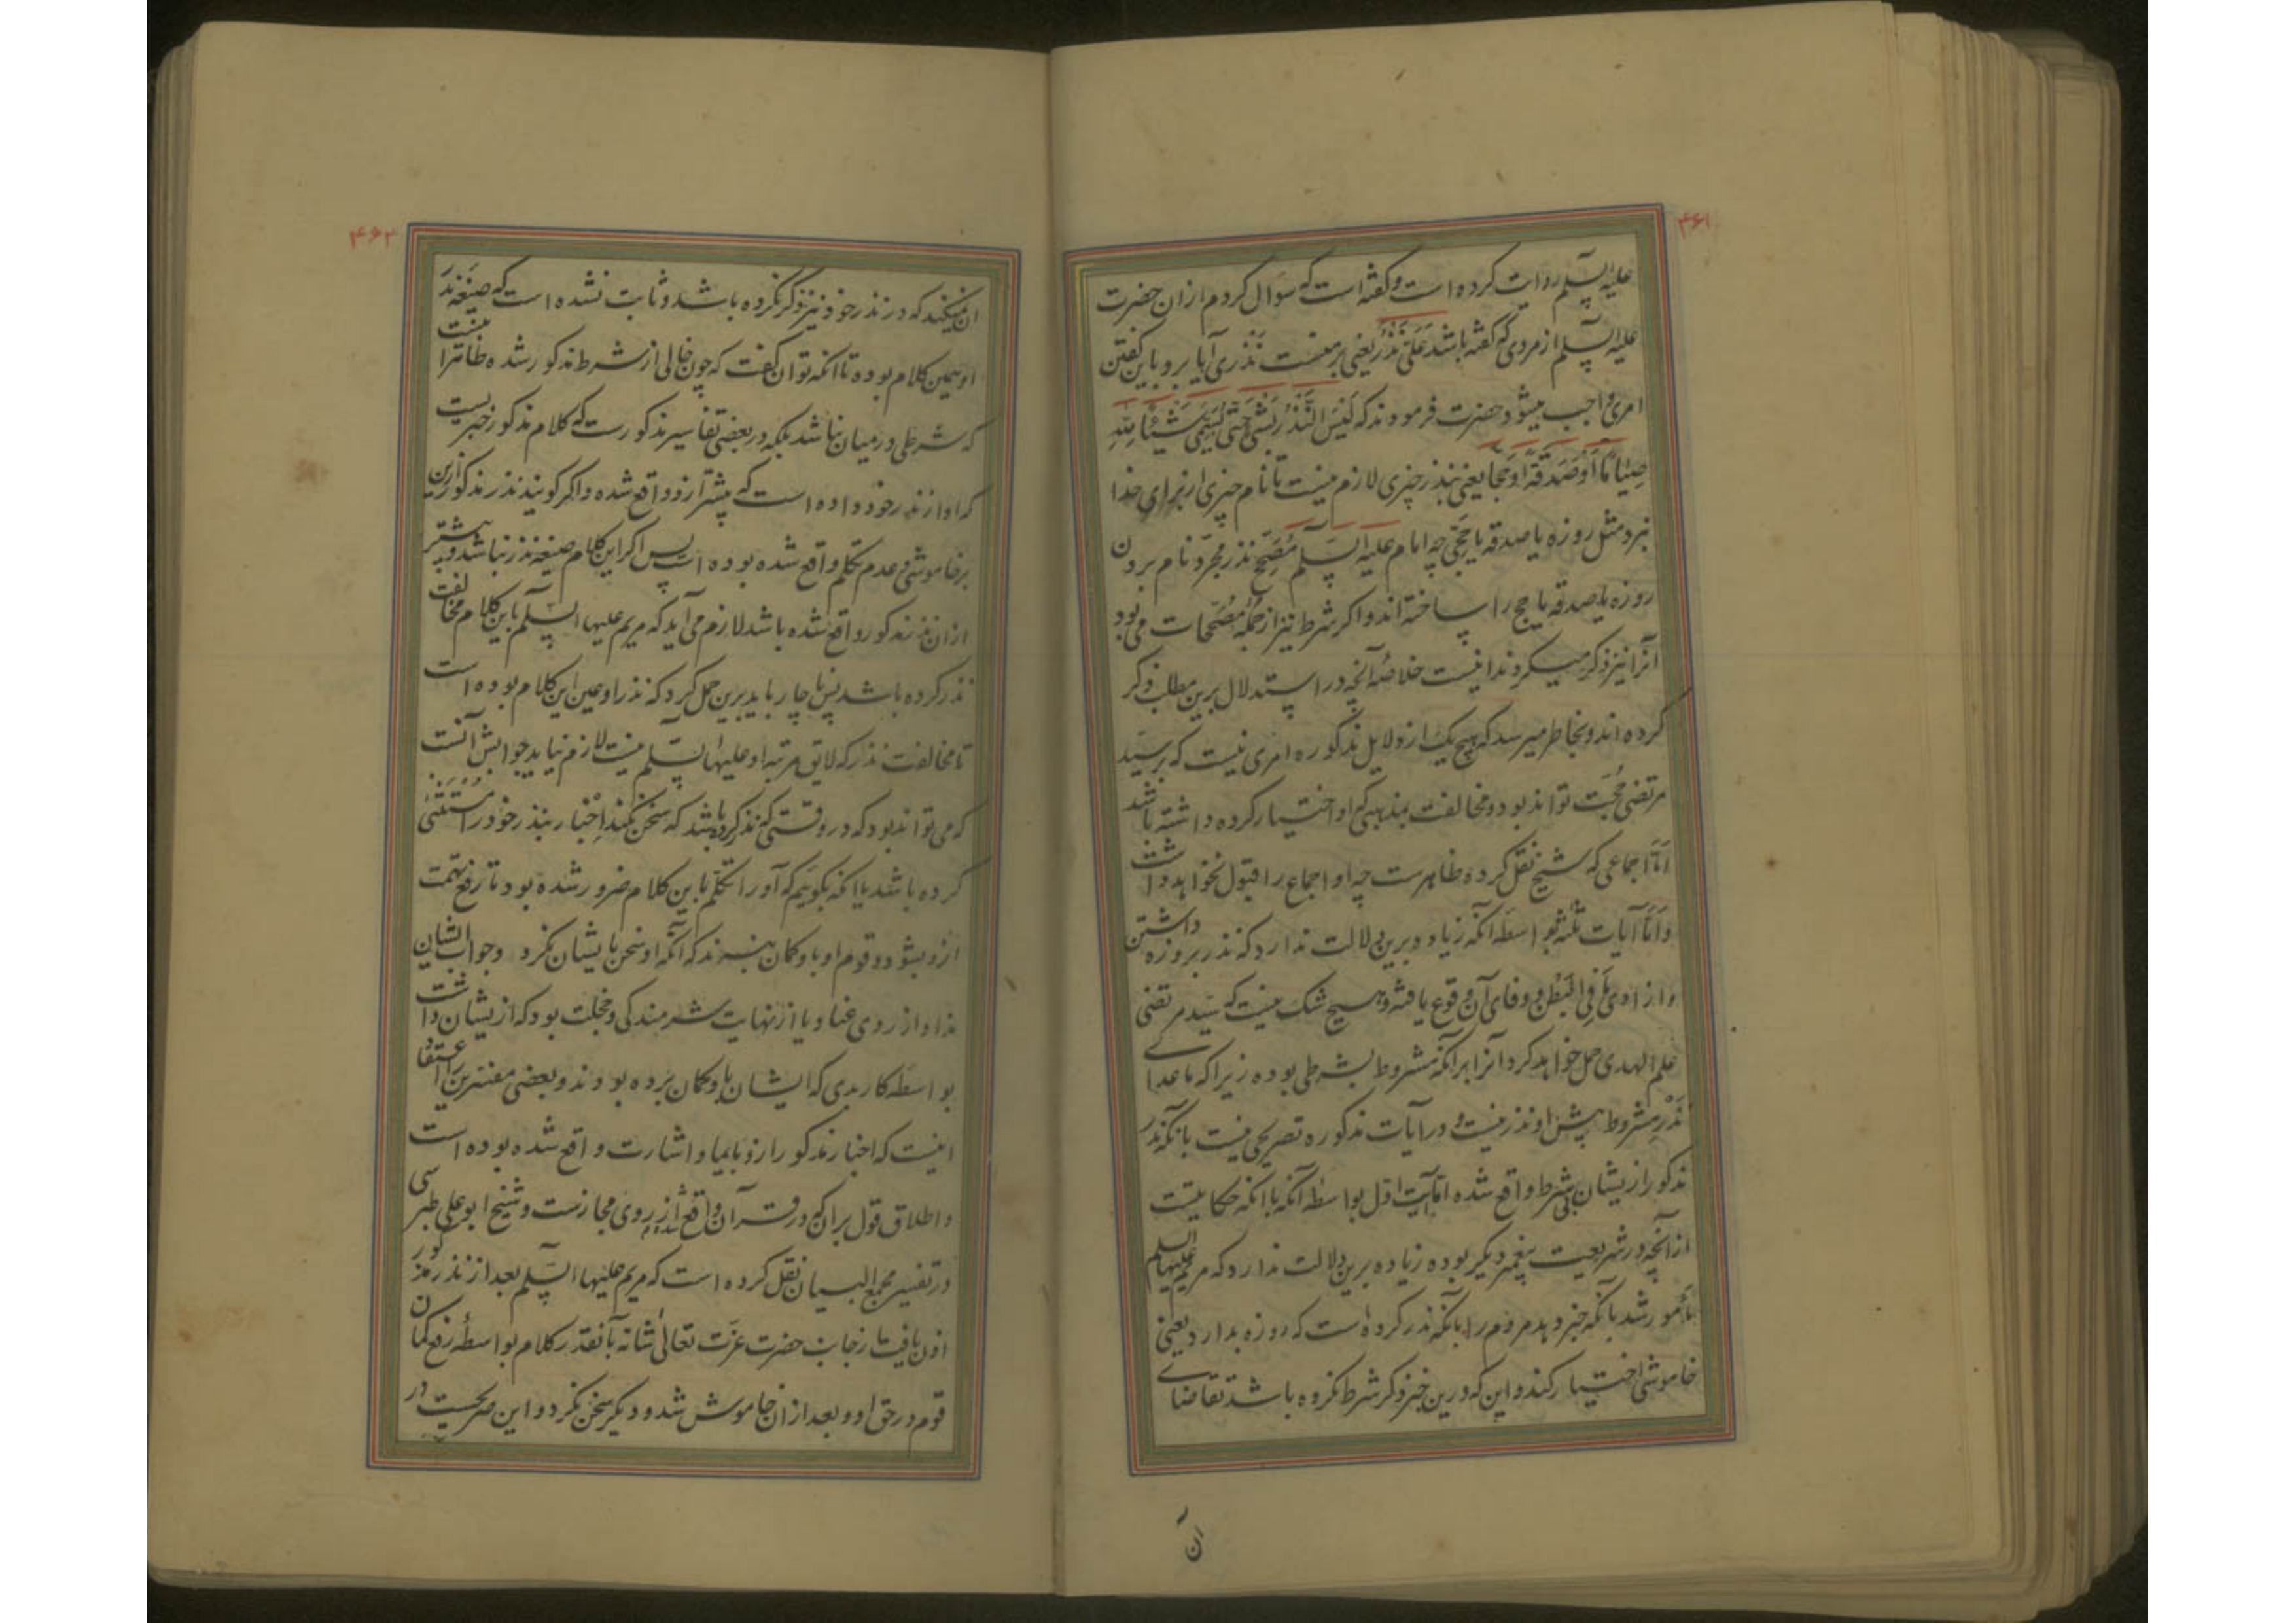 ۴۶۱
علیه السلم روایت کرده است و کفته است که سؤال کردم از ان حضرت
علیه السلم از مردی که کفته باشد عَلَیَّ نَذْرٌ یعنی بر منست نذری آیا برو باین کفتن
امری واجب میشود حضرت فرمودند که لَیْسَ النَّذْرُ بِشَیْءٍ حَتّی یُسَمِّیَ شَیْئًا لِلّهِ
صِیٰامًا اَوْ صَدَقَةً اَوْ حَجًّا یعنی نذر چیزی لازم نیست تا نام چیزی از برای خدا
نبرد مثل روزه یا صدقه یا حجّی چه امام علیه السلم مُصَحِّح نذر مجرّد نام بردن
روزه یا صدقه یا حج را ساخته اند و اکر شرط نیز از جملهٔ مُصَحِّحات می بود
آنرا نیز ذکر میکردند اینست خلاصهٔ آنچه در استدلال برین مطلب ذکر
کرده اند و بخاطر میرسد که هیچ یک از دلایل مذکوره امری نیست که بر سیّد
مرتضی حُجّت تواند بود و مخالفت بمذهبی که او اختیار کرده داشته باشد
امّا اجماعی که شیخ نقل کرده ظاهرست چه او اجماع را قبول نخواهد داشت
و امّا آیات ثلثه بواسطه آنکه زیاده برین دلالت ندارد که نذر بروزه داشتن
و از ادیِ مَا فِی الْبَطْن و وفای آن وقوع یافته و هیچ شک نیست که سیّد مرتضی
علم الهدی حمل خواهد کرد آنرا بر آنکه مشروط بشرطی بوده زیرا که ماعدای
نَذْرِ مشروط پیش او نذر نیست و در آیات مذکوره تصریحی نیست بانکه نذر
مذکور از یشان بی شرط واقع شده امّا آیت اوّل بواسطه آنکه با انکه حکایتیست
از آنچه در شریعت پیغمبر دیکر بوده زیاده برین دلالت ندارد که مریم علیها السلم
مأمور شد بانکه خبر دهد مردم را بانکه نذر کرده است که روزه بدارد یعنی
خاموشی اختیار کند و این که درین خبر ذکر شرط نکرده باشد تقاضای
آن
۴۶۲
ان نمیکند که در نذر خود نیز ذکر نکرده باشد و ثابت نشده است که صیغهٔ نذر
او همین کلام بوده تا انکه توان کفت که چون خالی از شرط مذکور شده ظاهرا نیست
که شرطی در میان نباشد بلکه در بعضی تفاسیر مذکورست که کلام مذکور خبریست
که او از نذر خود داده است که پیشتر ازو واقع شده و اکر کویند نذر مذکور ازین
بر خاموشی و عدم تکلم واقع شده بوده است پس اکر این کلام صیغه نذر نباشد و پیشتر
از ان نذر مذکور واقع شده باشد لازم می آید که مریم علیها السلم باین کلام مخالفت
نذر کرده باشد پس ناچار باید برین حمل کرد که نذر او عین این کلام بوده است
تا مخالفت نذر که لایق مرتبه او علیها السلم نیست لازم نیاید جوابش آنست
که می تواند بود که در وقتی که نذر کرده باشد که سخن نکند اِخْبار بنذر خود را مستثنی
کرده باشد یا انکه بکوییم که آورا تکلم باین کلام ضرور شده بود تا رفع تهمت
ازو بشود و قوم او باو کمان نبرند که آنکه او سخن با یشان نکرد و جواب ایشان
نداد از روی عناد یا از نهایت شرمندکی و خجلت بود که ازیشان داشت
بواسطه کار بدی که ایشان باو کمان برده بودند و بعضی مفسرین را اعتقاد
اینست که اخبار مذکور ازو بایما و اشارت واقع شده بوده است
و اطلاق قول بران که در قرآن واقع شده از روی مجازست و شیخ ابو علی طبرسی
در تفسیر مجمع البیان نقل کرده است که مریم علیها السلم بعد از نذر مذکور
اذن یافت از جانب حضرت عزّت تعالی شانه بآنقدر کلام بواسطهٔ رفع کمان
قوم در حق او و بعد از ان خاموش شد و دیکر سخن نکرد و این صریحیست در